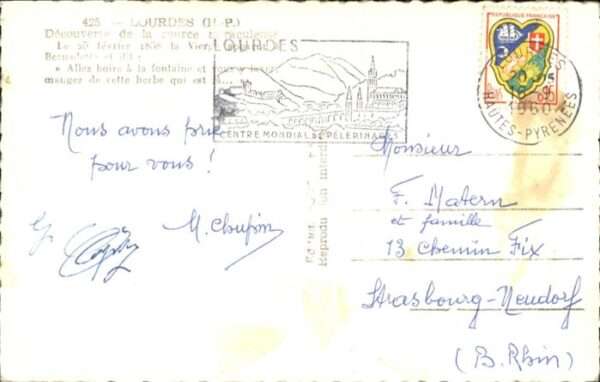 425 - LOURDES (H.-P.)
Découverte de la source miraculeuse
Le 25 février 1858 la Vierge
Bernadette et dit :
« Allez boire à la fontaine et
manger de cette herbe qui est
LOURDES
CENTRE MONDIAL DE PÈLERINAGES
RÉPUBLIQUE FRANÇAISE
LOURDES
1960
HAUTES-PYRÉNÉES
Nous avons prié
pour vous !
M. Chupin
Reprodu on interdi
Monsieur
F. Matern
et famille
13 Chemin Fix
Strasbourg-Neudorf
(B. Rhin)